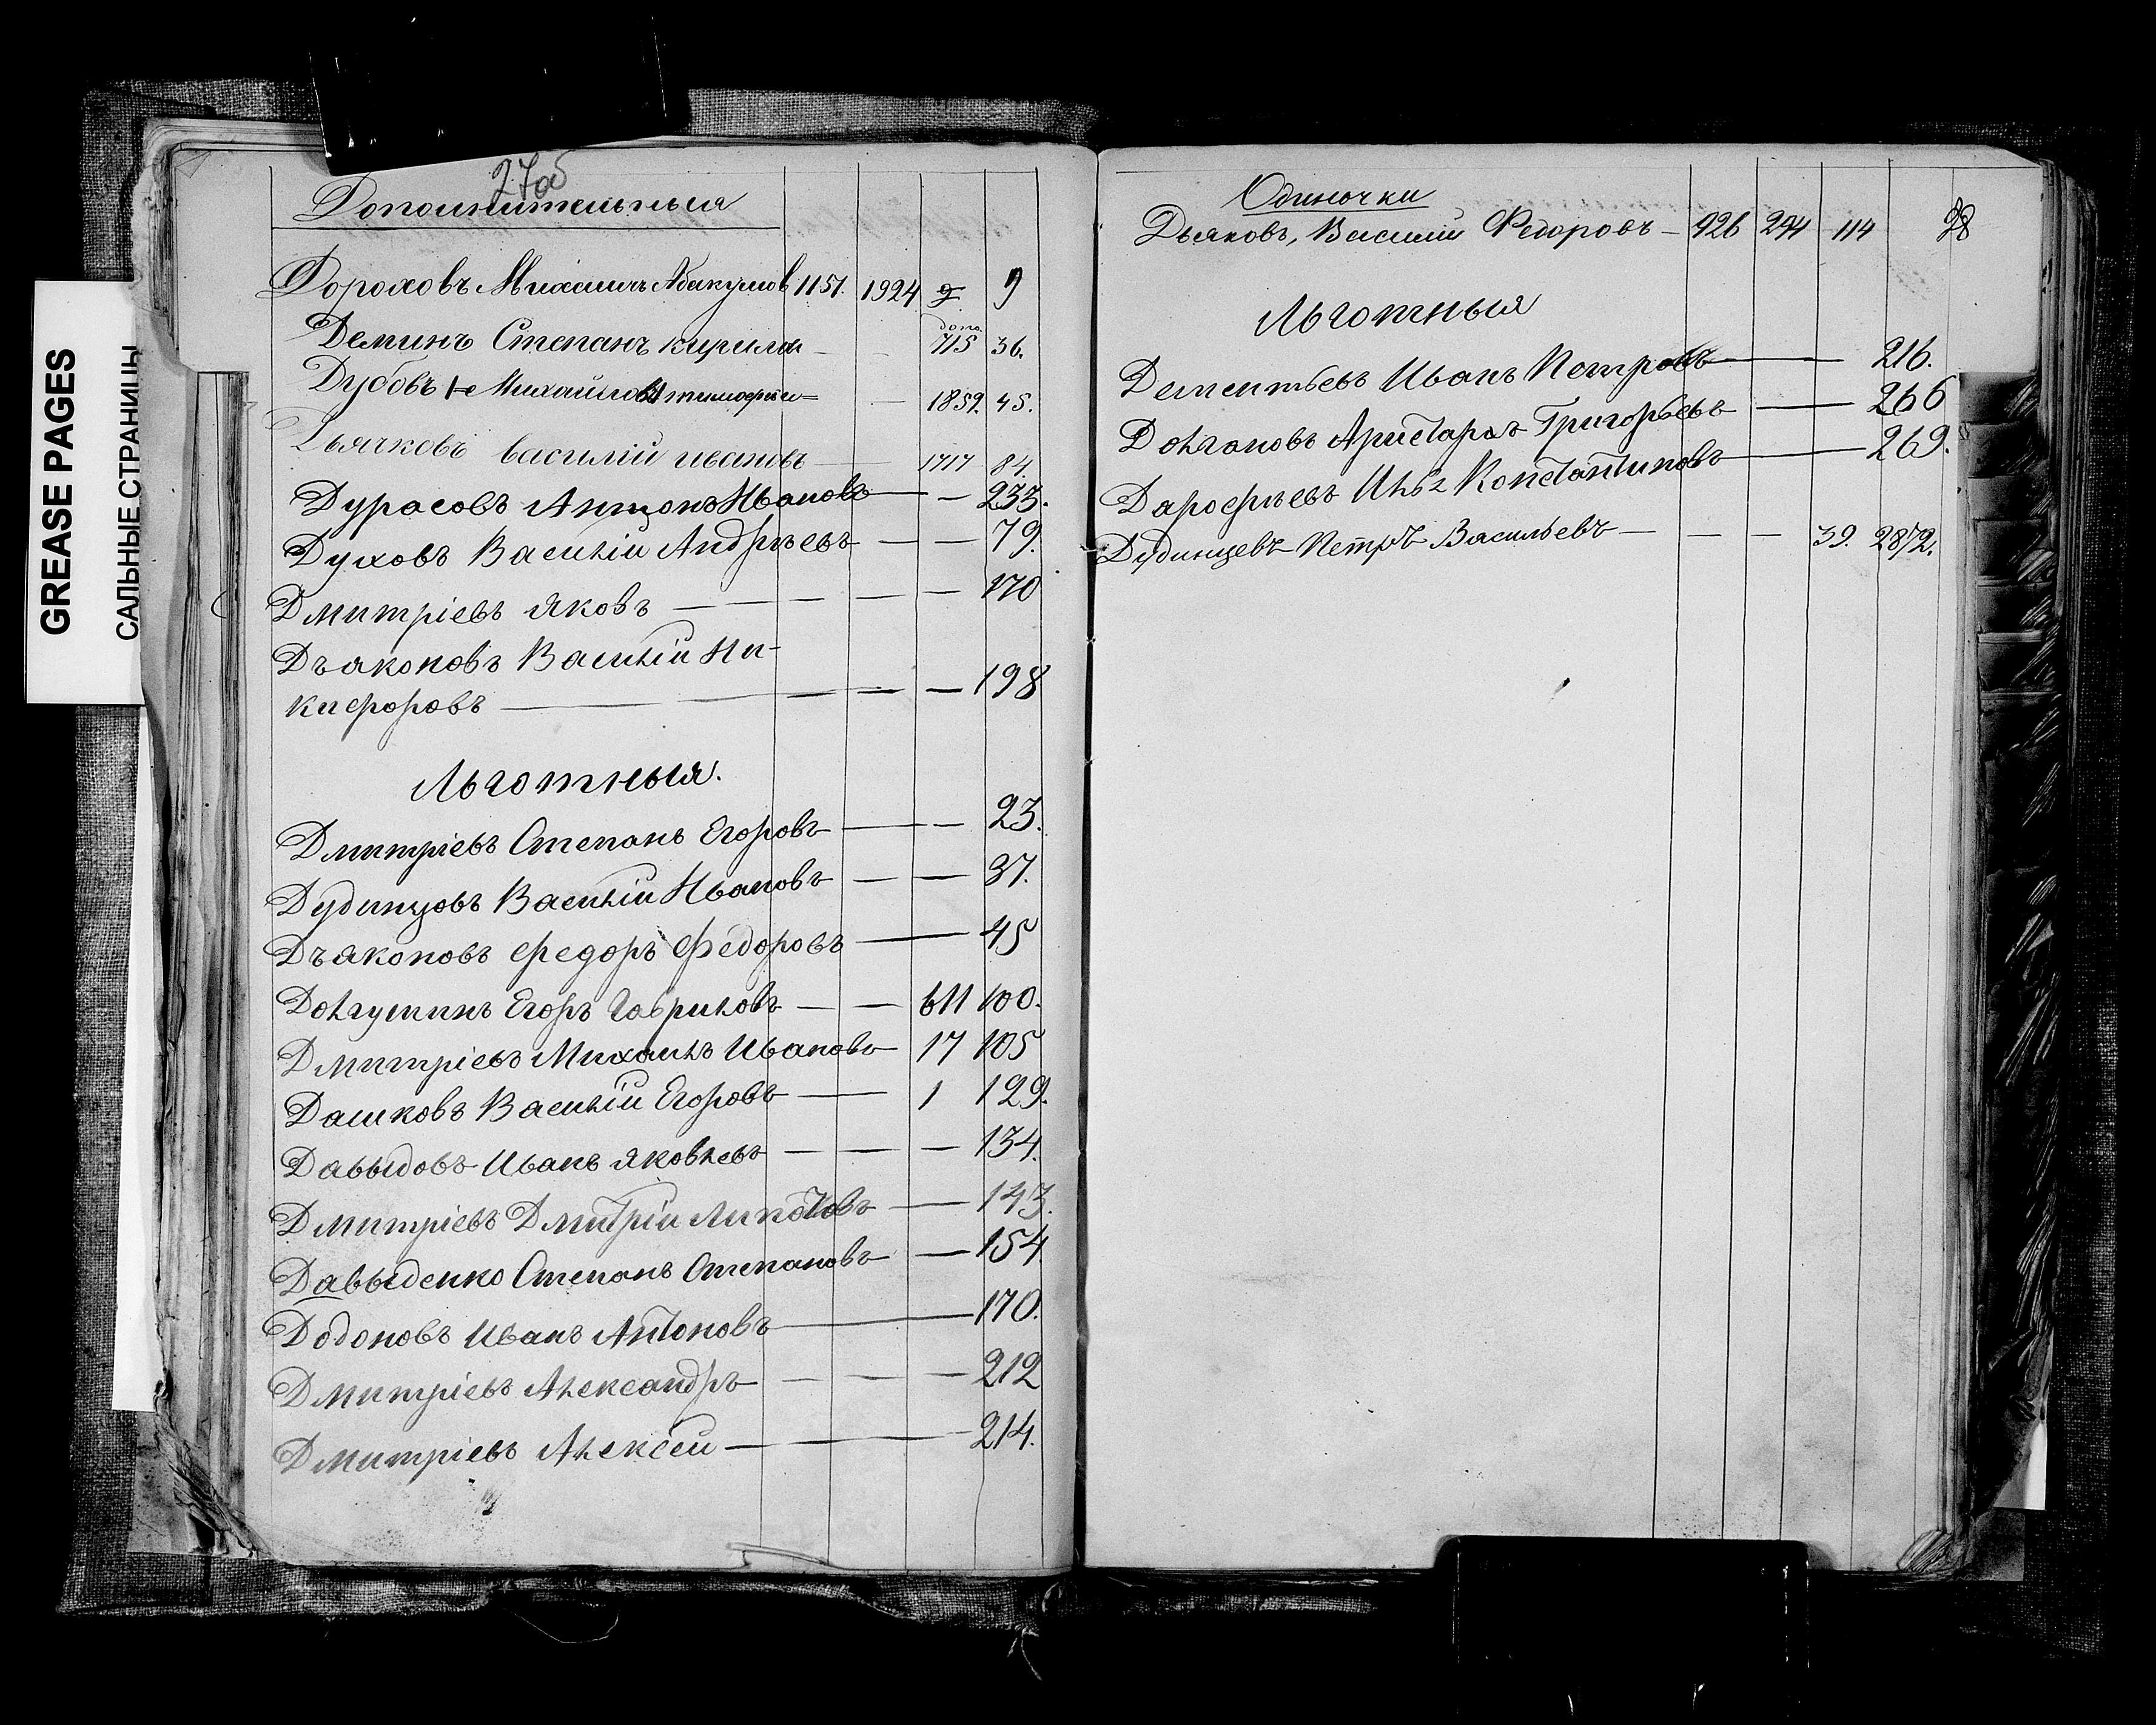 GREASE PAGES
САЛЬНЫЕ СТРАНИЦЫ
27об
Дополнительныя
Дороховъ Михаилъ Абакумов 1151. 1924 9
Деминъ Степанъ кирилов — — допо. 715 36.
Дубовъ Михайловъ тимофеев — 1859. 45.
Дьячковъ василий ивановъ — 1717 84.
Дурасовъ Антонъ Ивановъ — — 233.
Духовъ Василій Андрѣевъ — — 79.
Дмитріевъ Яковъ — — — — 170
Дъяконовъ Василій Ни-
кифоровъ — — — 198
Льготныя.
Дмитріевъ Степанъ Егоровъ — — 23.
Дудинцовъ Василій Ивановъ — — 37.
Дъяконовъ Федоръ Федоровъ — 45
Долгушинъ Егоръ Гавриловъ — — 611 100.
Дмитріевъ Михаилъ Ивановъ 17 105
Дашковъ Василій Егоровъ — 1 129.
Давыдовъ Иванъ Яковлевъ — — — 134.
Дмитріевъ Дмитрій — 143.
Давыденко Степанъ Степановъ — 154
Додоновъ Иванъ Антоновъ — 170.
Дмитріевъ Александръ — — — 212
Дмитріевъ Алексѣй — 214.
Одиночки
Дьяковъ, Василий Федоровъ — 926 294 114 28
Льготныя
Дементьевъ Иванъ Петровъ — 216.
Долгановъ Аристархъ Григорьевъ — 266
Дарофѣевъ Илья Константиновъ — 269.
Дудинцевъ Петръ Васильевъ — — — 39. 2872.